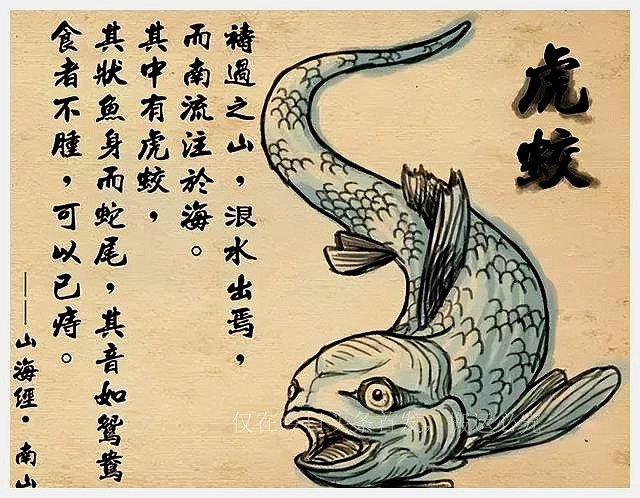 虎蛟
禱過之山，泿水出焉，
而南流注於海。
其中有虎蛟，
其狀魚身而蛇尾，其音如鴛鴦
食者不腫，可以已痔。
——山海經·南山